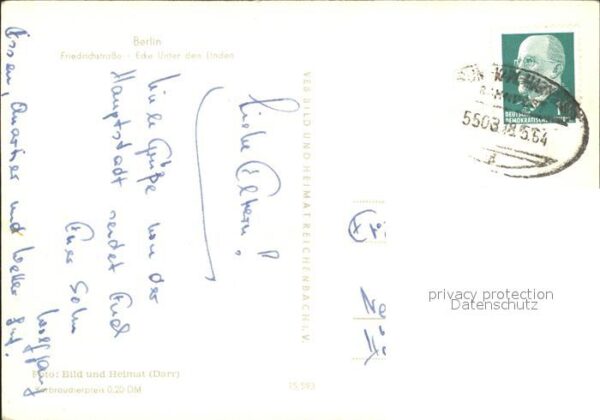 Berlin
Friedrichstraße - Ecke Unter den Linden
Liebe Eltern!
Viele Grüße von der
Hauptstadt sendet Euch
Euer Sohn
Wolfgang
Essen, Quartier und Wetter gut.
VEB BILD UND HEIMAT REICHENBACH I. V.
DEUTSCHE
DEMOKRATISCHE
5508
5.64
privacy protection
Datenschutz
Foto: Bild und Heimat (Darr)
Verbraucherpreis 0,20 DM